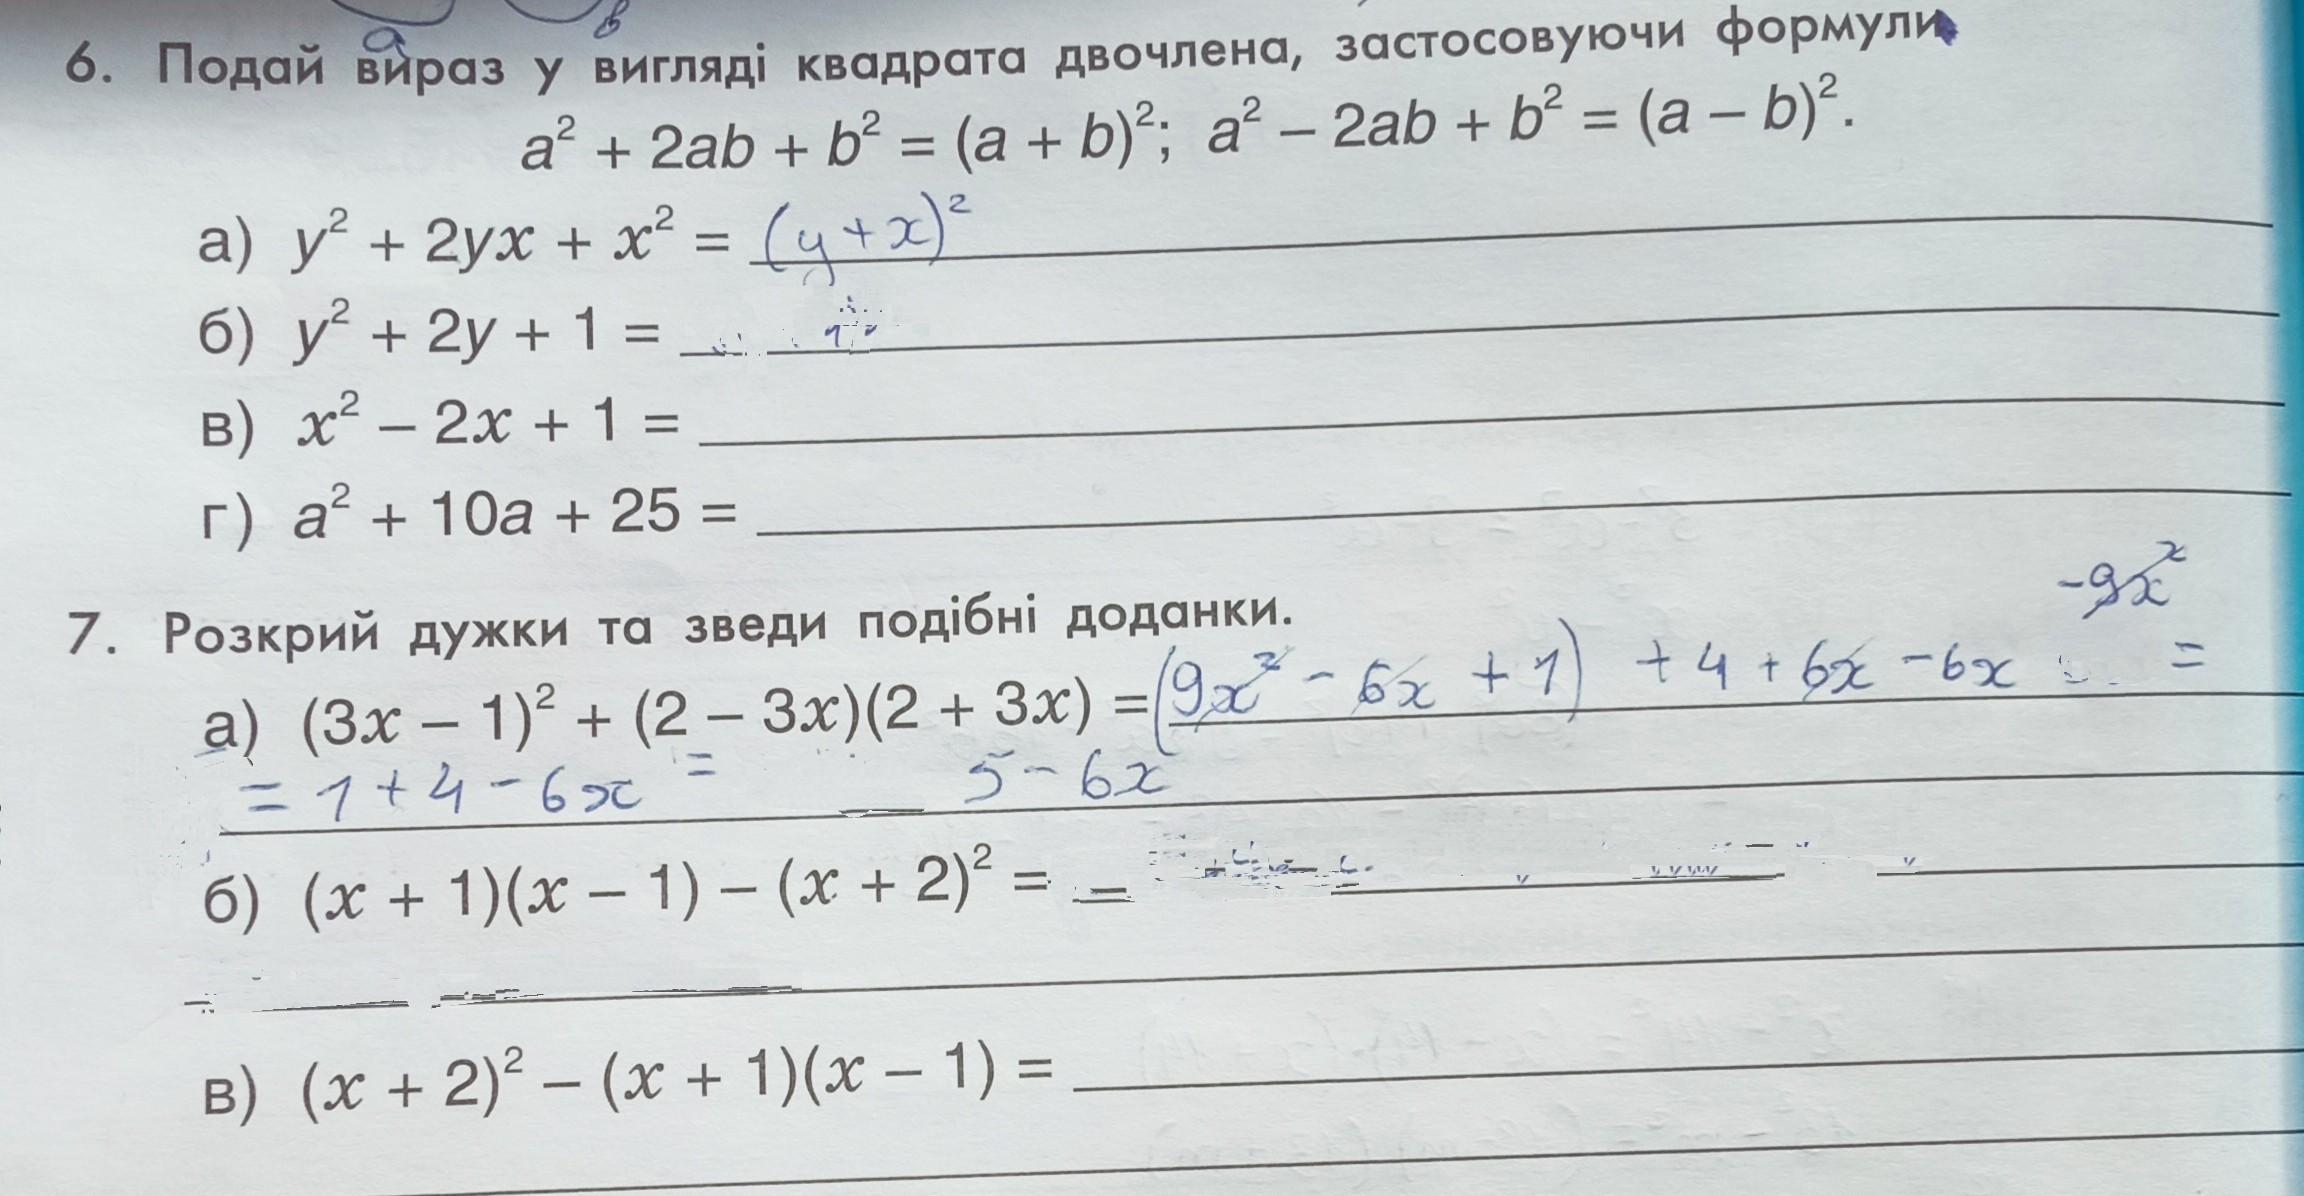 6. Подай вираз у вигляді квадрата двочлена, застосовуючи формули
a² + 2ab + b² = (a + b)²; a² – 2ab + b² = (a – b)².
а) y² + 2yx + x² = (y + x)²
б) y² + 2y + 1 =
в) x² – 2x + 1 =
г) a² + 10a + 25 =
7. Розкрий дужки та зведи подібні доданки.
-9x²
а) (3x – 1)² + (2 – 3x)(2 + 3x) = (9x² - 6x + 1) + 4 + 6x - 6x =
= 1 + 4 - 6x = 5 - 6x
б) (x + 1)(x – 1) – (x + 2)² =
в) (x + 2)² – (x + 1)(x – 1) =